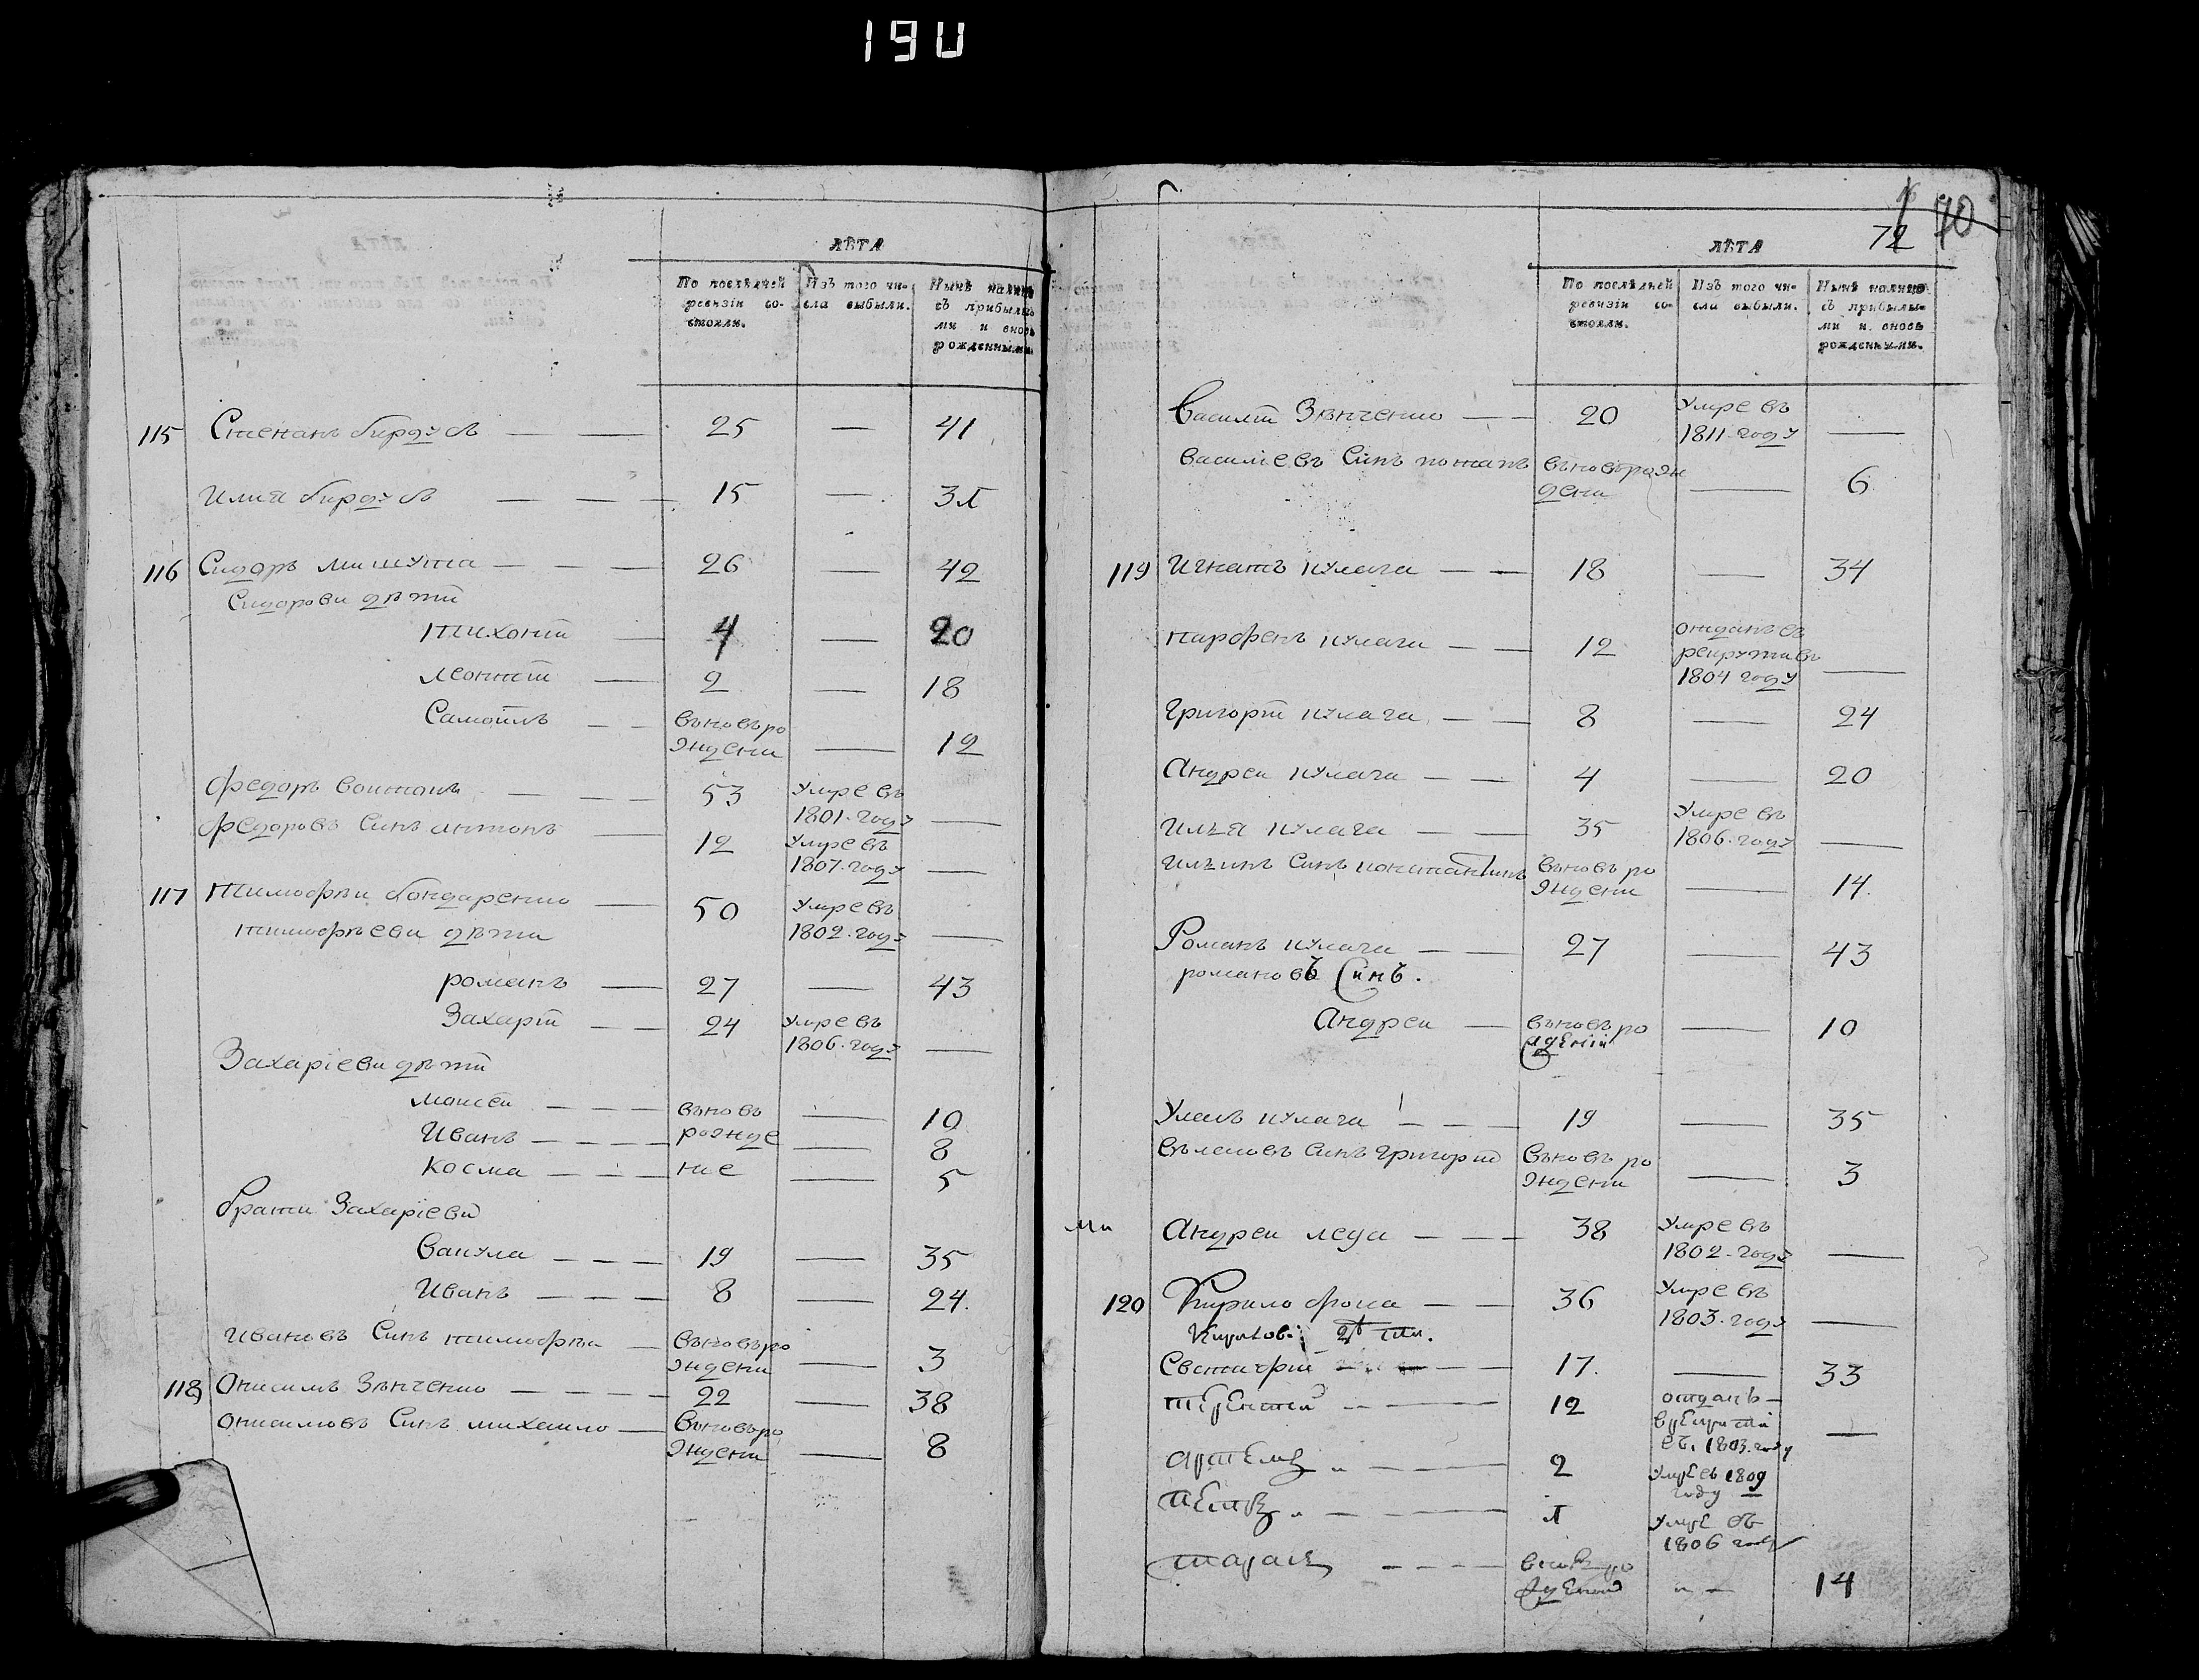 190
ЛѢТА
По послѣдней ревизіи состояли.
Изъ того числа выбыли.
Нынѣ налицо съ прибылыми и вновь рожденными.
115 Степанъ бирдусъ — — 25 — 41
илия бирдусъ — — — 15 — 31
116 Сидоръ мишута — — — 26 — 42
Сидорови дѣти
тихонй — 4 — 20
леонтй — 2 — 18
Самойлъ — — вновъро
ждени — 12
федоръ воитанъ — — — 53 умре въ
1801. году —
федоровъ Синъ антонъ — 12 умре въ
1807. году —
117 тимофѣи бондаренко — 50 умре въ
1802. году —
тимофѣеви дѣти
романъ — 27 — 43
Захарй — — 24 умре въ
1806. году —
Захаріеви дѣти
моисеи — — — вновъ — 10
Иванъ — — — — рожде — 8
косма — — — ние — 5
брати Захаріеви
вакула — — — 19 — 35
Иванъ — — — 8 — 24.
ивановъ Синъ тимофѣи — вновъро
ждени — 3
118 Онисимъ Зѣнченко — — — — 22 — 38
онисимовъ Синъ михаило — вновъро
ждени — 8
72 70
ЛѢТА
По послѣдней ревизіи состояли.
Изъ того числа выбыли.
Нынѣ налицо съ прибылыми и вновь рожденными.
василй Зѣнченко — — 20 умре въ
1811. году —
василіевъ Синъ потапъ вновърож
дени — 6
119 Игнатъ кулага — — 18 — 34
парфенъ кулага — — 12 отданъ въ
рекрути въ
1804 году —
григорй кулага — — 8 — 24
Андреи кулага — — 4 — 20
илья кулага — — 35 умре въ
1806. году —
ильинъ Синъ константинъ вновъ ро
ждени — 14.
Романъ кулага — — 27 — 43
романовъ Синъ.
Андреи — вновъ ро
ждений — 10
Уласъ кулага — — — 19 — 35
власовъ Синъ григорий вновъ ро
ждени — 3
Андреи леда — — — 38 умре въ
1802. году —
120 Кирило фока — — 36 умре въ
1803. году —
Кирилови дѣти.
Евстафй — — 17. — 33
терентий — — 12 отданъ —
врекрути
въ. 1803. году —
артемъ — — 2 умре въ 1809
году
петръ — — 1 умре въ
1806 году
тарасъ — — — — вновъ ро
ждений — 14